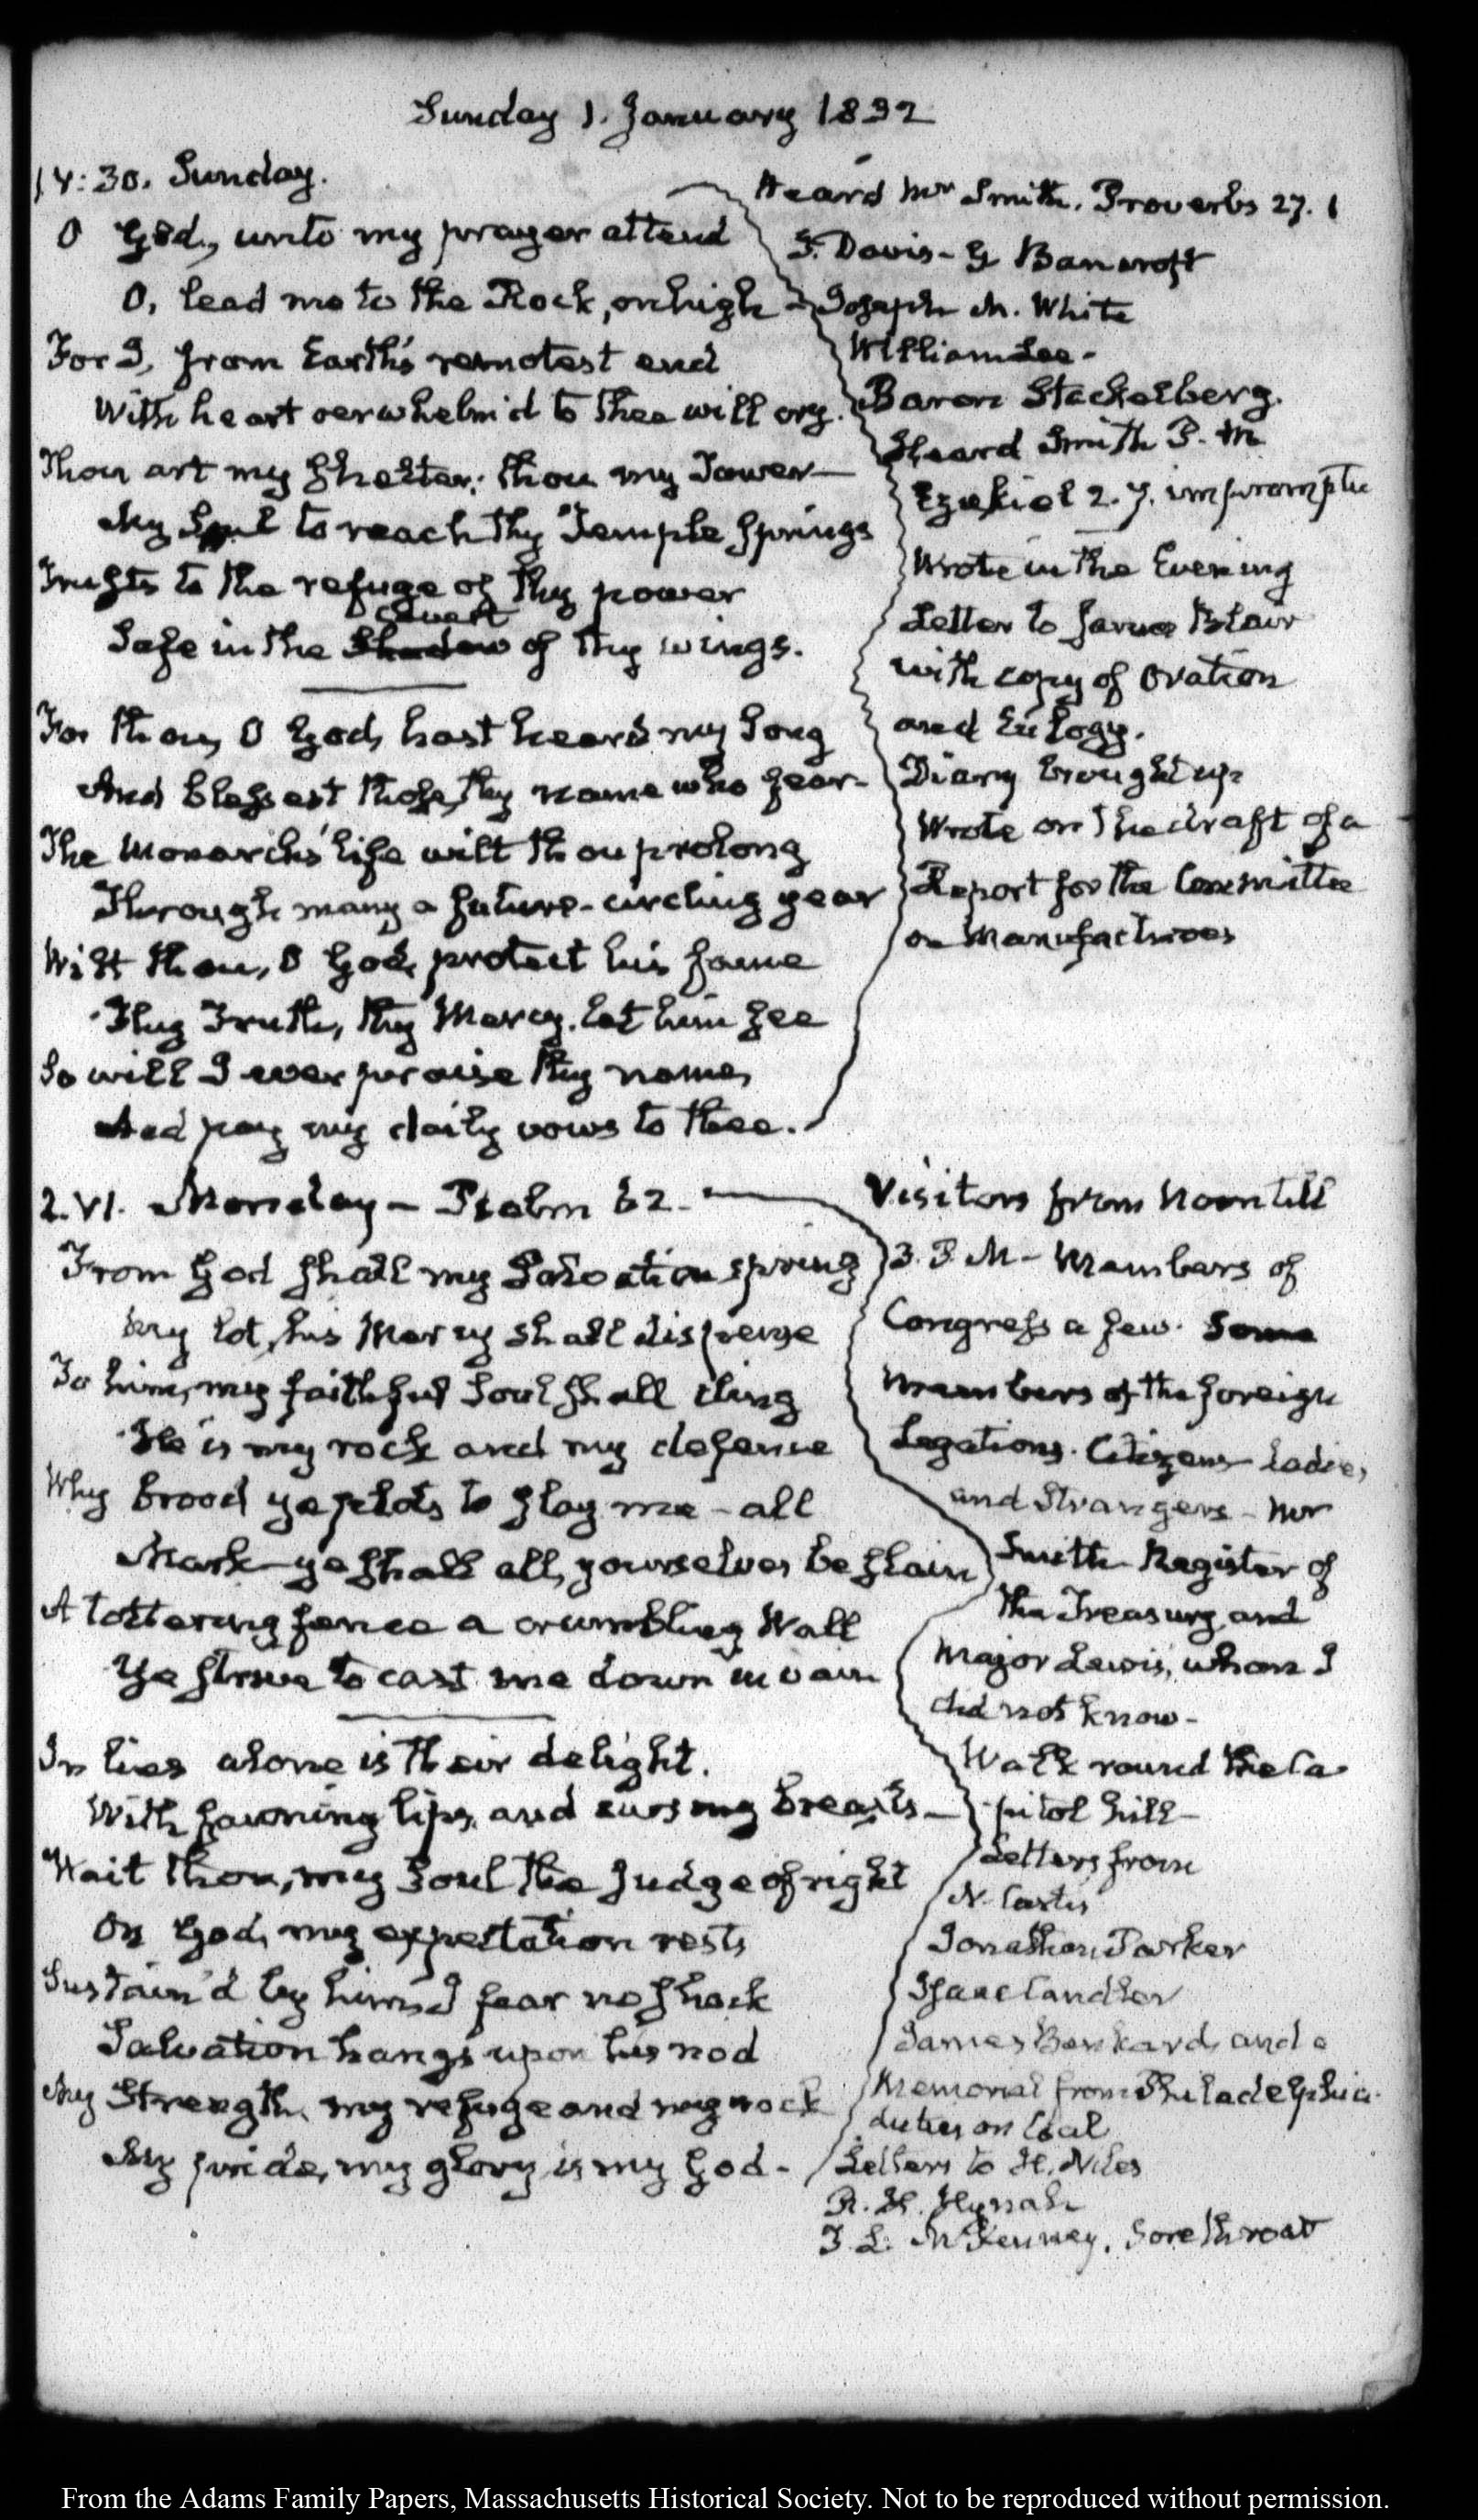 Sunday 1. January 1832
14:30. Sunday.
O God, unto my prayer attend
O, lead me to the Rock, on high
For I, from Earth's remotest end
With heart oerwhelm'd to thee will cry.
Thou art my shelter; thou my Tower—
My Soul to reach thy Temple springs
Trusts to the refuge of thy power
Covert
Safe in the Shadow of thy wings.
For thou, O God, hast heard my song
And blessest those, thy name who fear—
The Monarch's life wilt thou prolong
Through many a future-circling year
Wilt thou, O God, protect his fame
Thy Truth, thy Mercy, let him see
So will I ever praise thy name,
And pay my daily vows to thee.
Heard Mr Smith. Proverbs 27. 1
J. Davis - G Bancroft
Joseph M. White
William Lee -
Baron Stackelberg.
Heard Smith P. M
Ezekiel 2. 7. impromptu
Wrote in the Evening
Letter to James Blair
with copy of Oration
and Eulogy.
Diary brought up
Wrote on the draft of a
Report for the Committee
on Manufactures
2. VI. Monday — Psalm 62.
From God shall my Salvation spring
My lot, his Mercy shall dispense
To him, my faithful Soul shall cling
He is my rock and my defence
Why brood ye plots to slay me - all
Mark - ye shall all, yourselves be slain
A tottering fence a crumbling Wall
Ye strive to cast me down in vain
In lies alone is their delight.
With fawning lips, and cursing breasts—
Wait thou, my Soul the Judge of right
On God, my expectation rests
Sustain'd by him I fear no shock
Salvation hangs upon his nod
My Strength, my refuge and my rock
My pride, my glory is my God -
Visitors from Noon till
3. P. M - Members of
Congress a few. Some
Members of the foreign
Legations. Citizens Ladies,
and Strangers - Mr
Smith Register of
the Treasury, and
Major Lewis, whom I
did not know -
Walk round the Ca
pitol hill -
Letters from
N.
Jonathan
Isaac
James and a
Memorial from Philadelphia.
duties on Coal
Letters to H. Niles
R. H.
T. L. McKenney. Sore throat
From the Adams Family Papers, Massachusetts Historical Society. Not to be reproduced without permission.